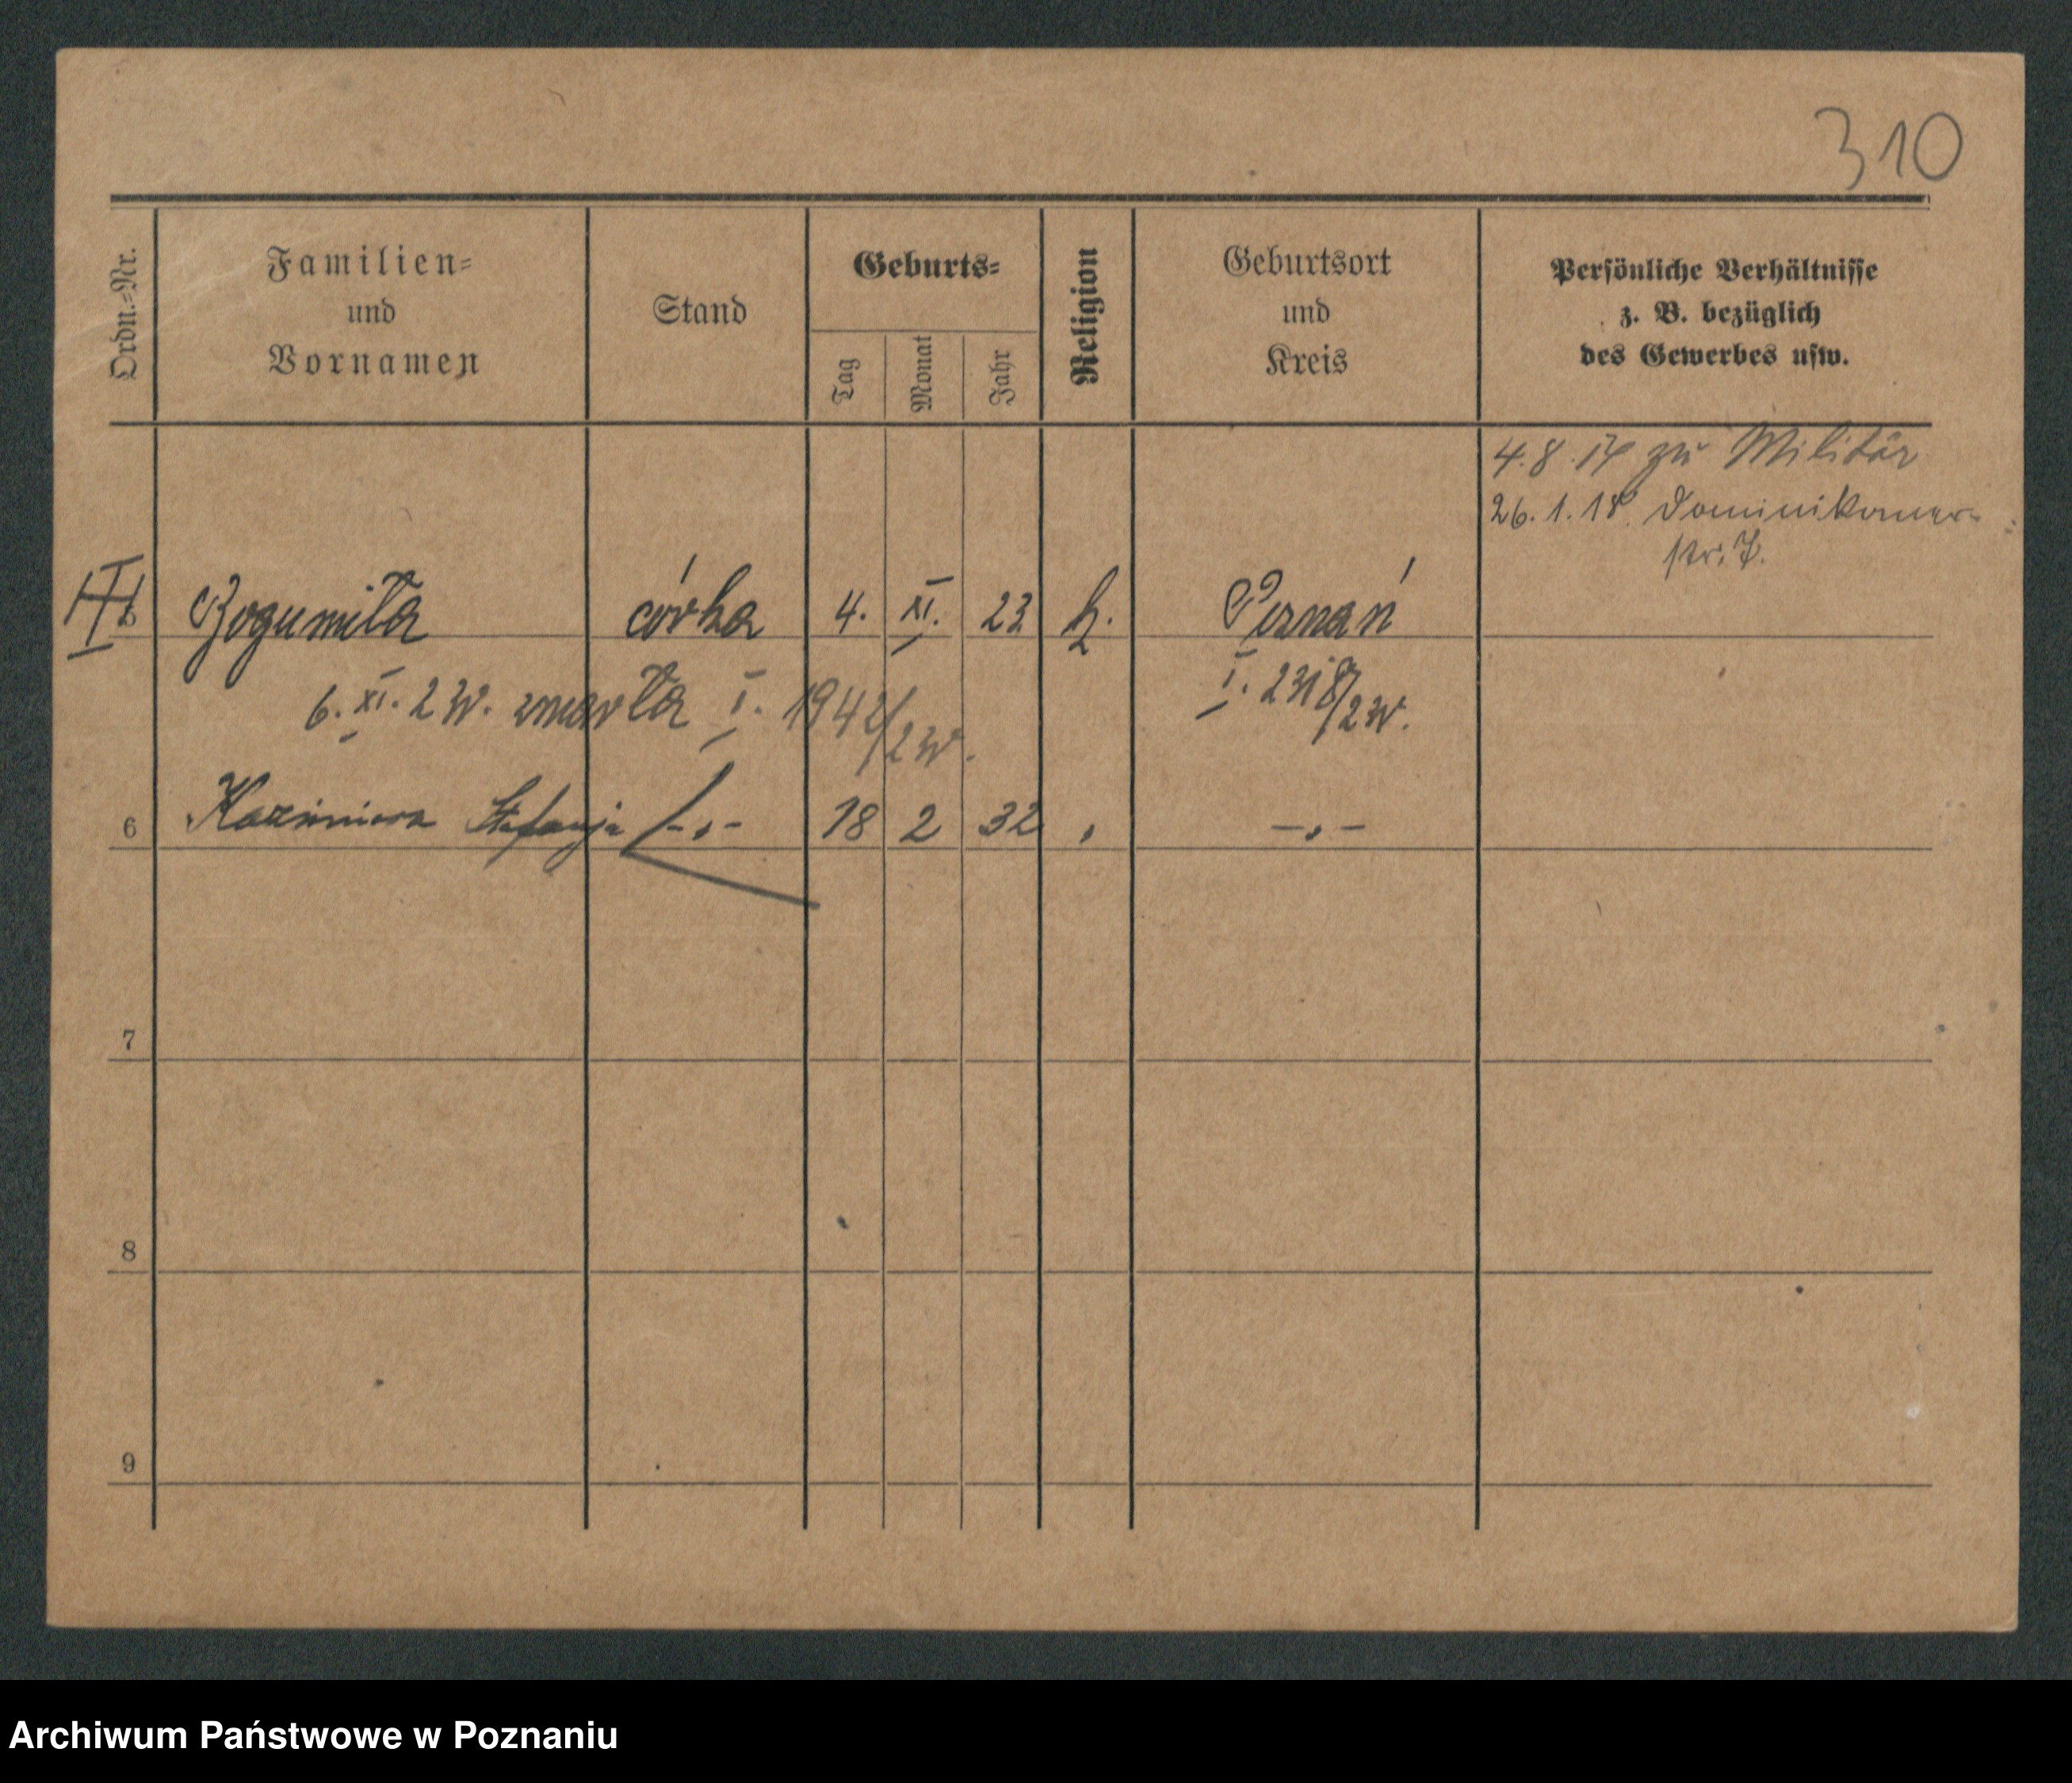 310
Ordn.-Nr.
Familien-
und
Vornamen
Stand
Geburts-
Tag
Monat
Jahr
Religion
Geburtsort
und
Kreis
Persönliche Verhältnisse
z. B. bezüglich
des Gewerbes usw.
4.8.17 zu Militär
26.1.18. Dominikaner-
str. 7.
Bogumiła córka 4. XI. 23 k. Poznań
6. XI. 23r. zmarła I. 1942/23r. I. 2318/23r.
6 Kazimiera Stefanja -„- 18 2 32 „ -„-
7
8
9
Archiwum Państwowe w Poznaniu